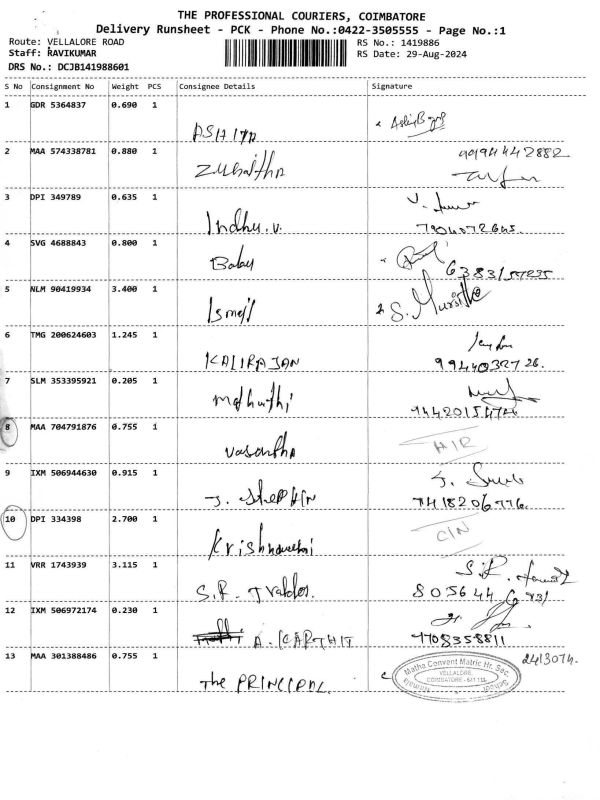 THE PROFESSIONAL COURIERS, COIMBATORE
Delivery Runsheet - PCK - Phone No.:0422-3505555 - Page No.:1
Route: VELLALORE ROAD
RS No.: 1419886
Staff: RAVIKUMAR
RS Date: 29-Aug-2024
DRS No.: DCJB141988601
S No Consignment No Weight PCS Consignee Details Signature
1 GDR 5364837 0.690 1
2 MAA 574338781 0.880 1 9094442882
Zubaitha
3 DPI 349789 0.635 1
Indhu.v.
4 SVG 4688843 0.800 1
Baby
5 NLM 90419934 3.400 1
Ismail
6 TMG 200624603 1.245 1
KALIRAJAN
7 SLM 353395921 0.205 1
8 MAA 704791876 0.755 1
Vasantha
9 IXM 506944630 0.915 1
J. Stephin 7418206776.
10 DPI 334398 2.700 1
11 VRR 1743939 3.115 1
S.R.
12 IXM 506972174 0.230 1
9708358811
13 MAA 301388486 0.755 1 2413074.
The PRINCIPAL
Matha Convent Matric Hr. Sec. School
VELLALORE,
COIMBATORE - 641 111